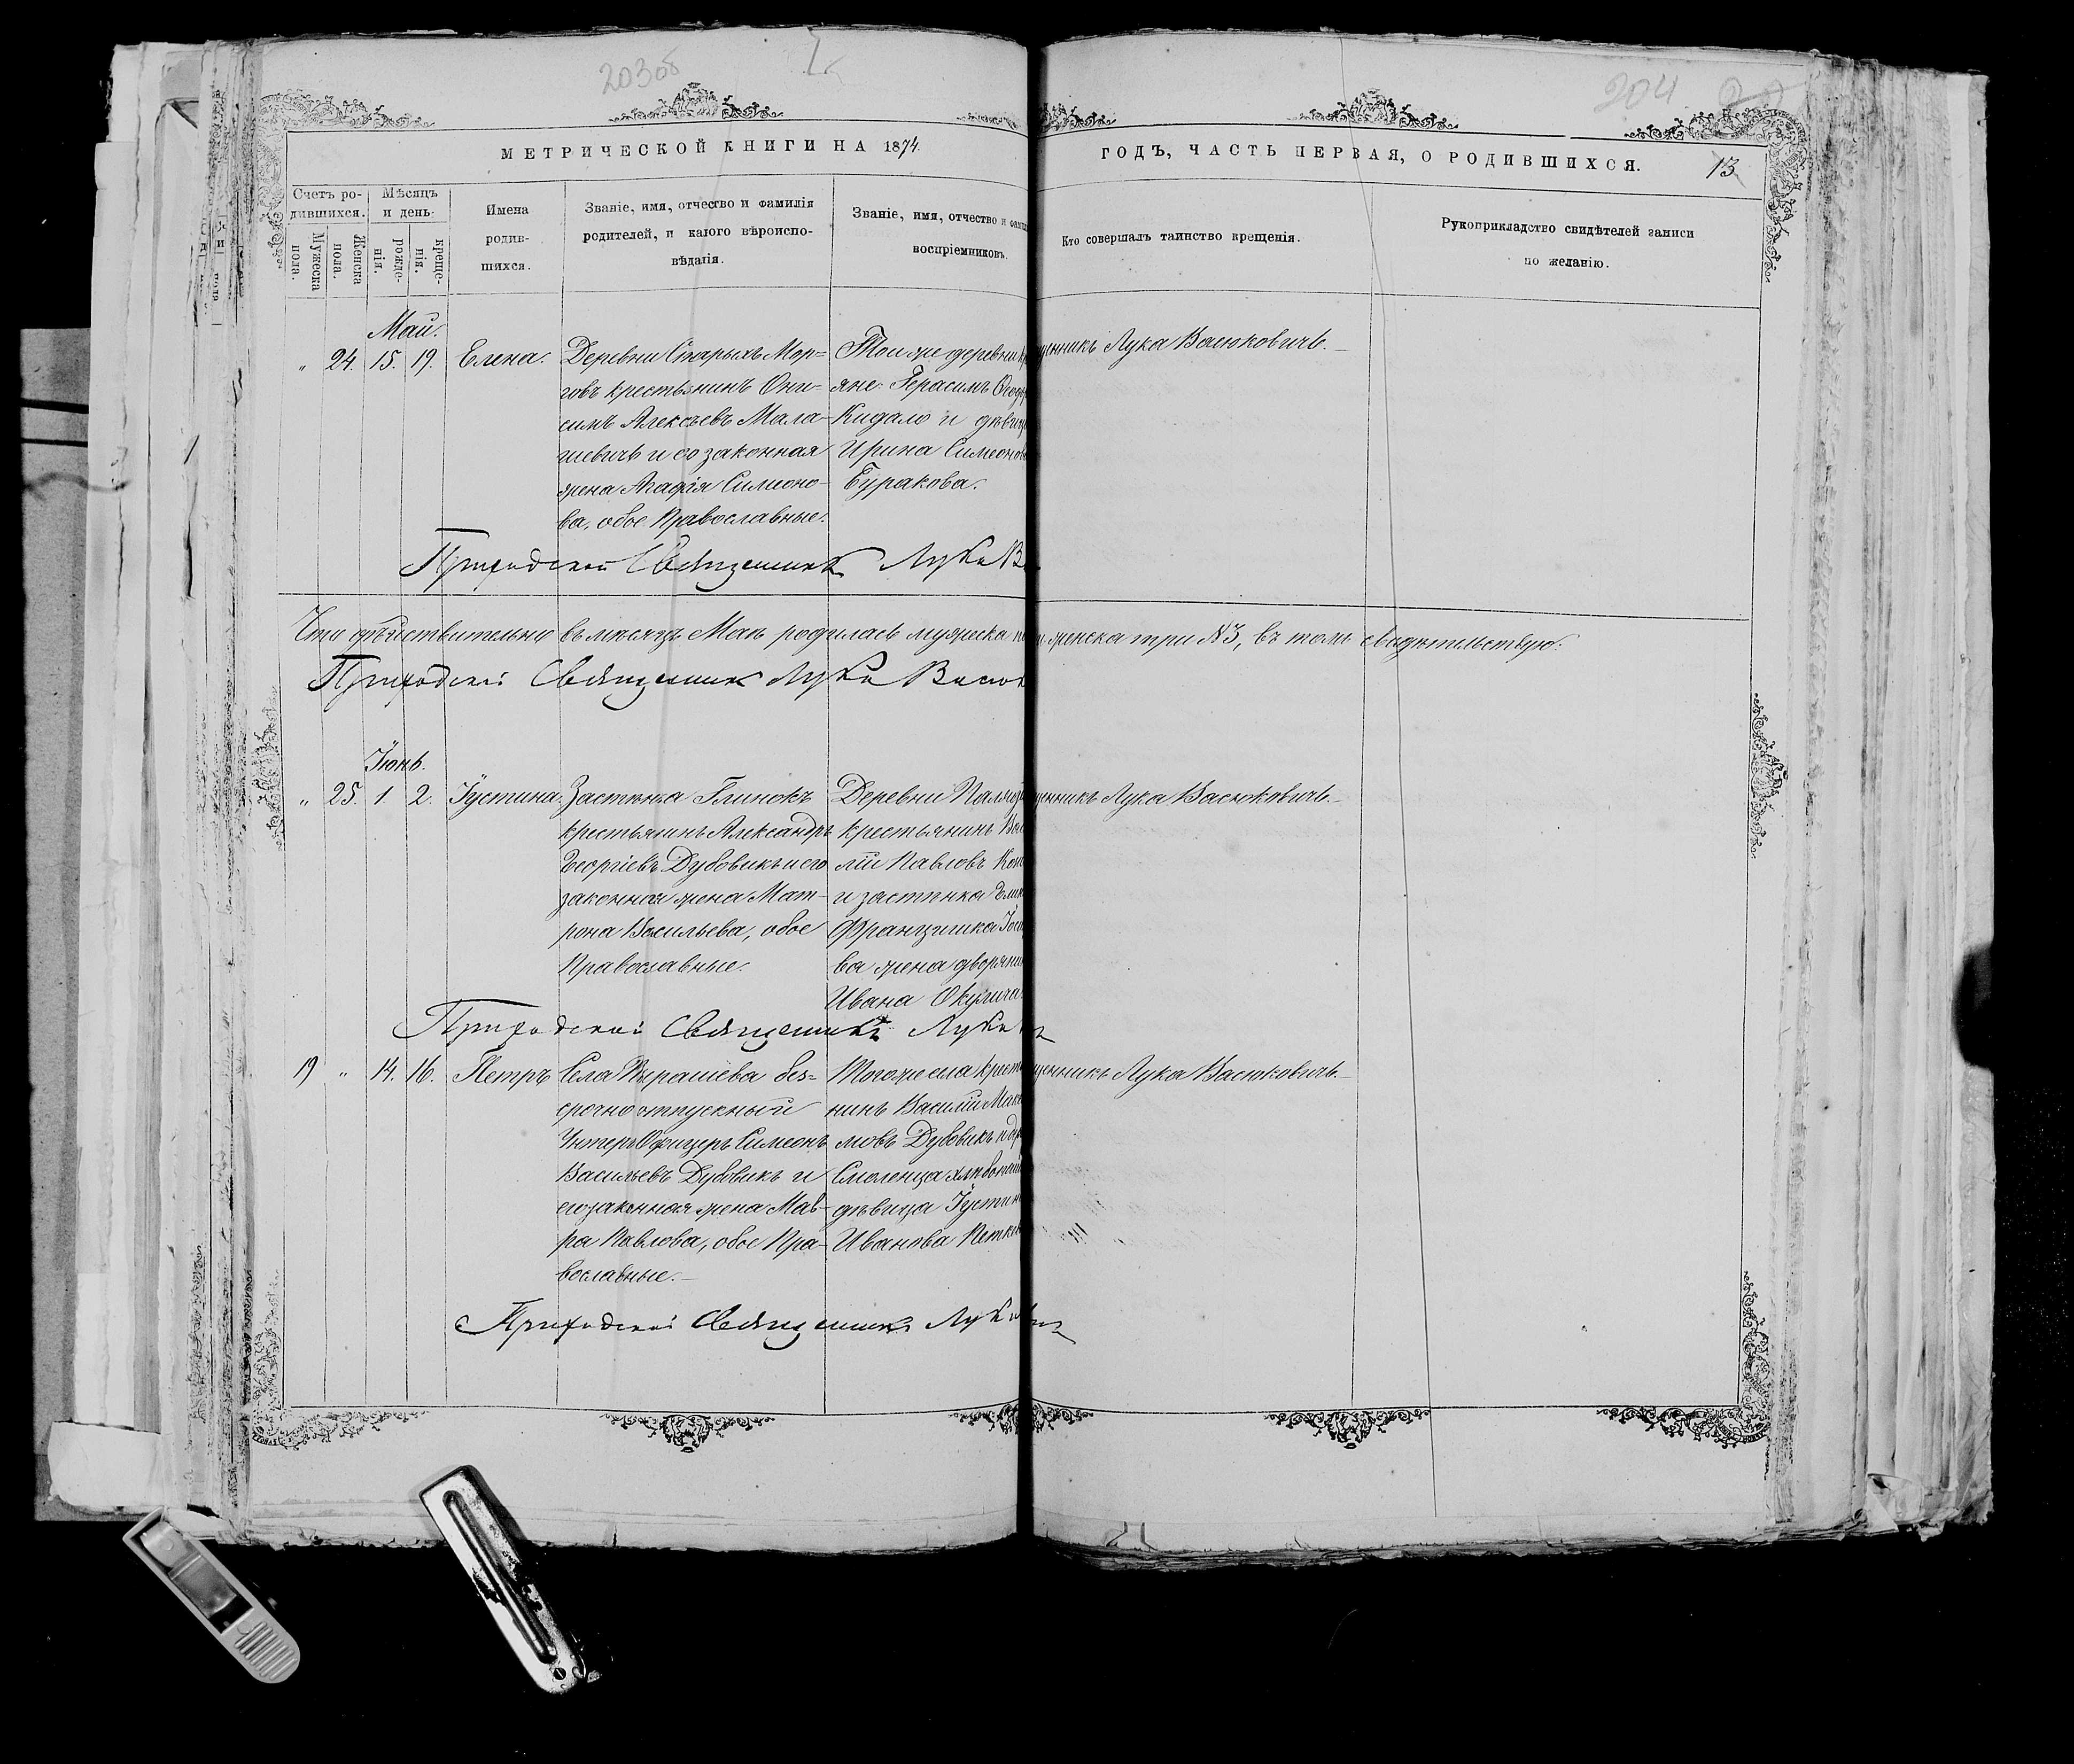 203об
204
МЕТРИЧЕСКОЙ КНИГИ НА 1874.
ГОДЪ, ЧАСТЬ ПЕРВАЯ, О РОДИВШИХСЯ.
13
Счетъ ро-
дившихся.
Мѣсяцъ
и день.
Мужеска
пола.
Женска
пола.
рожде-
нія.
креще-
нія.
Имена
родив-
шихся.
Званіе, имя, отчество и фамилія
родителей, и какого вѣроиспо-
вѣданія.
Званіе, имя, отчество и фамил
воспріемниковъ.
Кто совершалъ таинство крещенія.
Рукоприкладство свидѣтелей записи
по желанію.
Май.
" 24. 15. 19. Елена.
Деревни Старыхъ Мор=
говъ крестьянинъ Они-
симъ Алексѣевъ Мала-
шевичъ и его законная
жена Агафія Симеоно-
ва, обое Православные.
Той же деревни кр
яне: Герасимъ
Кидало и дѣвица
Ирина Симеонов
Буракова.
щенникъ Лука Васюковичъ.
Приходскій Священникъ Лука В
Что дѣйствительно въ мѣсяцѣ Маѣ родилась мужеска п женска три №3, въ томъ свидѣтельствую:
Приходскій Священникъ Лука Васюк
Іюнь.
" 25. 1. 2. Іустина.
Застѣнка Глинокъ
крестьянинъ Александръ
Георгіевъ Дубовикъ и его
законная жена Мат-
рона Васильева, обое
Православные.
Деревни
крестьянинъ Ва
лій Павловъ
и застѣнка
Францишка Іоси
ва жена дворянин
Ивана Окулича
щенникъ Лука Васюковичъ.
Приходскій Священникъ Лука
19 " 14. 16. Петръ
Села без=
срочноотпускный
Унтеръ Офицеръ Симеонъ
Васильевъ Дубовикъ и
его законная жена Мав-
ра Павлова, обое Пра-
вославные.
Тогоже села кресть
нинъ Василій Макс
мовъ Дубовикъ и
Смоленца хлѣбопаш
дѣвица Іустин
Иванова Петкев
щенникъ Лука Васюковичъ.
Приходскій Священникъ Лука